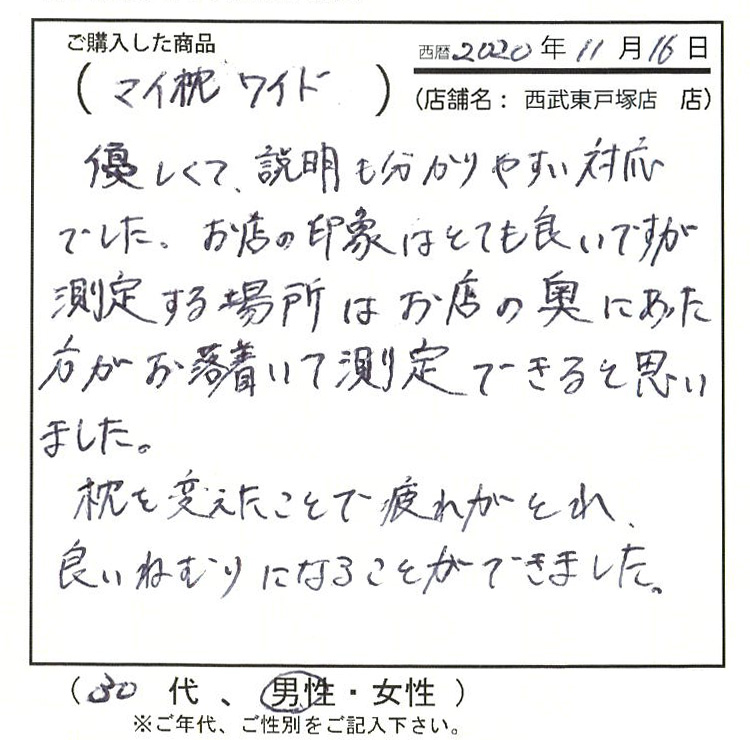 ご購入した商品
西暦2020年11月16日
(マイ枕 ワイド)
(店舗名: 西武東戸塚店 店)
優しくて、説明も分かりやすい対応
でした。お店の印象はとても良いですが
測定する場所はお店の奥にあった
方がお落着いて測定できると思い
ました。
枕を変えたことで疲れがとれ、
良いねむりになることができました。
(30代、男性・女性)
※ご年代、ご性別をご記入下さい。